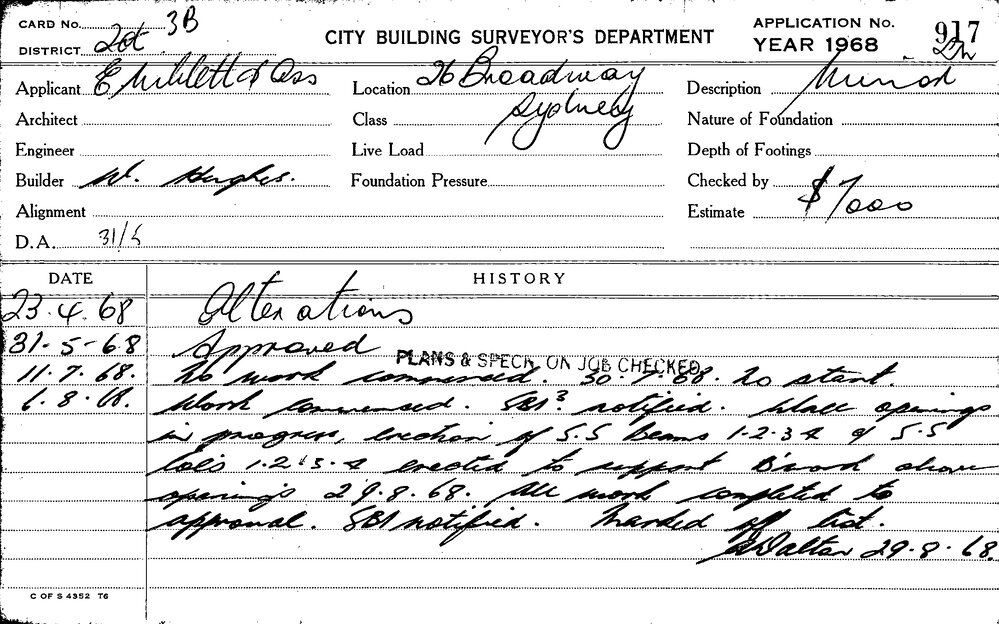 CARD No. 3B
DISTRICT
CITY BUILDING SURVEYOR'S DEPARTMENT
APPLICATION No. 917
YEAR 1968
Applicant E
Location 26 Broadway
Sydney
Description
Architect
Class
Nature of Foundation
Engineer
Live Load
Depth of Footings
Builder W. Hughes.
Foundation Pressure
Checked by
Alignment
Estimate $7000
D.A. 31/5
DATE HISTORY
23.4.68 Alterations
31-5-68 Approved
PLANS & SPECN. ON JOB CHECKED
11.7.68. No work commenced. 30.7.68. No start.
6.8.68. Work commenced. notified. Wall openings
in progress, erection of S.S Beams 1-2-3 4 of S.S
Col's 1.2.3.4 erected to support B'work above
openings 29.8.68. All work completed to
approval. notified. Marked off list.
29-8-68.
C OF S 4352 T6